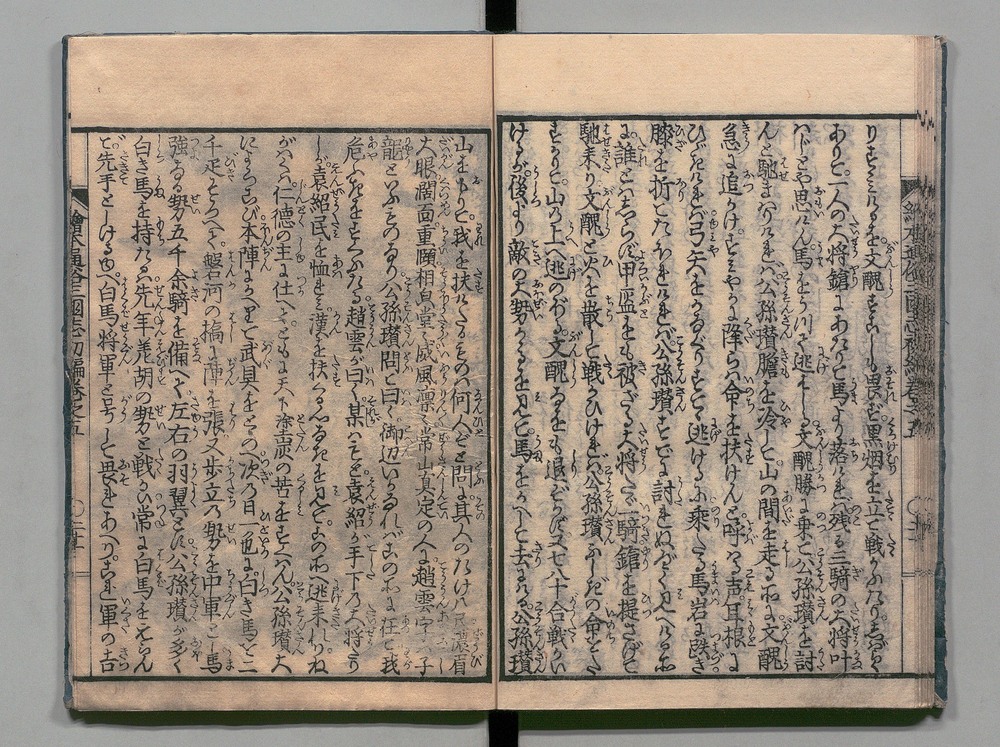 りすゝみけるを文醜すこしも畏ず黒烟を立て戦かふたりしばらく
ありて一人の大将鎗にあたりて馬より落れば残る三騎の大将叶
はじとや思けん馬をかへして逃はしる文醜勝に乗て公孫瓚を討
んと馳まはりければ公孫瓚膽を冷して山の間を走る所に文醜
急に追かけすみやかに降らば命を扶けんと呼はる声耳根に
ひゞければ弓矢をかなぐりすてゝ逃けるが乗たる馬岩に跌き
膝を折てたふれければ公孫瓚すでに討れぬべく見へける所
に誰とはしらず甲盔をも被ざる大将たゞ一騎鎗を提さげて
馳来り文醜と火を散して戦かひければ公孫瓚ふしぎの命をた
すかり山の上へ逃のぼる文醜すこしも退ぞかず七八十合戦かい
けるが後より敵の大勢かゝるを見て馬をかへして去ければ公孫瓚
山をおりて我を扶けたるものハ何人ぞと問に其人のたけハ八尺濃眉
大眼濶面重頤相皃堂々威風凛々常山真定の人に趙雲字ハ子
龍といふものなり公孫瓚問て曰く御辺いかなればこの所に在て我
危きをすくふたる趙雲が曰く某ハもと袁紹が手下の大将たり
しが袁紹民を恤れミ漢を扶くる心なきを見てこの所へ逃来れりね
がはくハ仁徳の主に仕へてともに天下塗炭の苦をすくはん公孫瓚大
によろこび本陣にかへりて武具をとゝのへ次の日一色に白き馬を二
千疋そろへて磐河の橋に陣を張又歩立の勢を中軍とし馬
強なる勢五千余騎を備へて左右の羽翼とす公孫瓚が多く
白き馬を持たるハ先年羌胡の勢と戦かひ常に白馬をえらん
で先手としける也白馬将軍と号して畏れあへりされば軍の吉
繪本通俗三國志初編巻之五